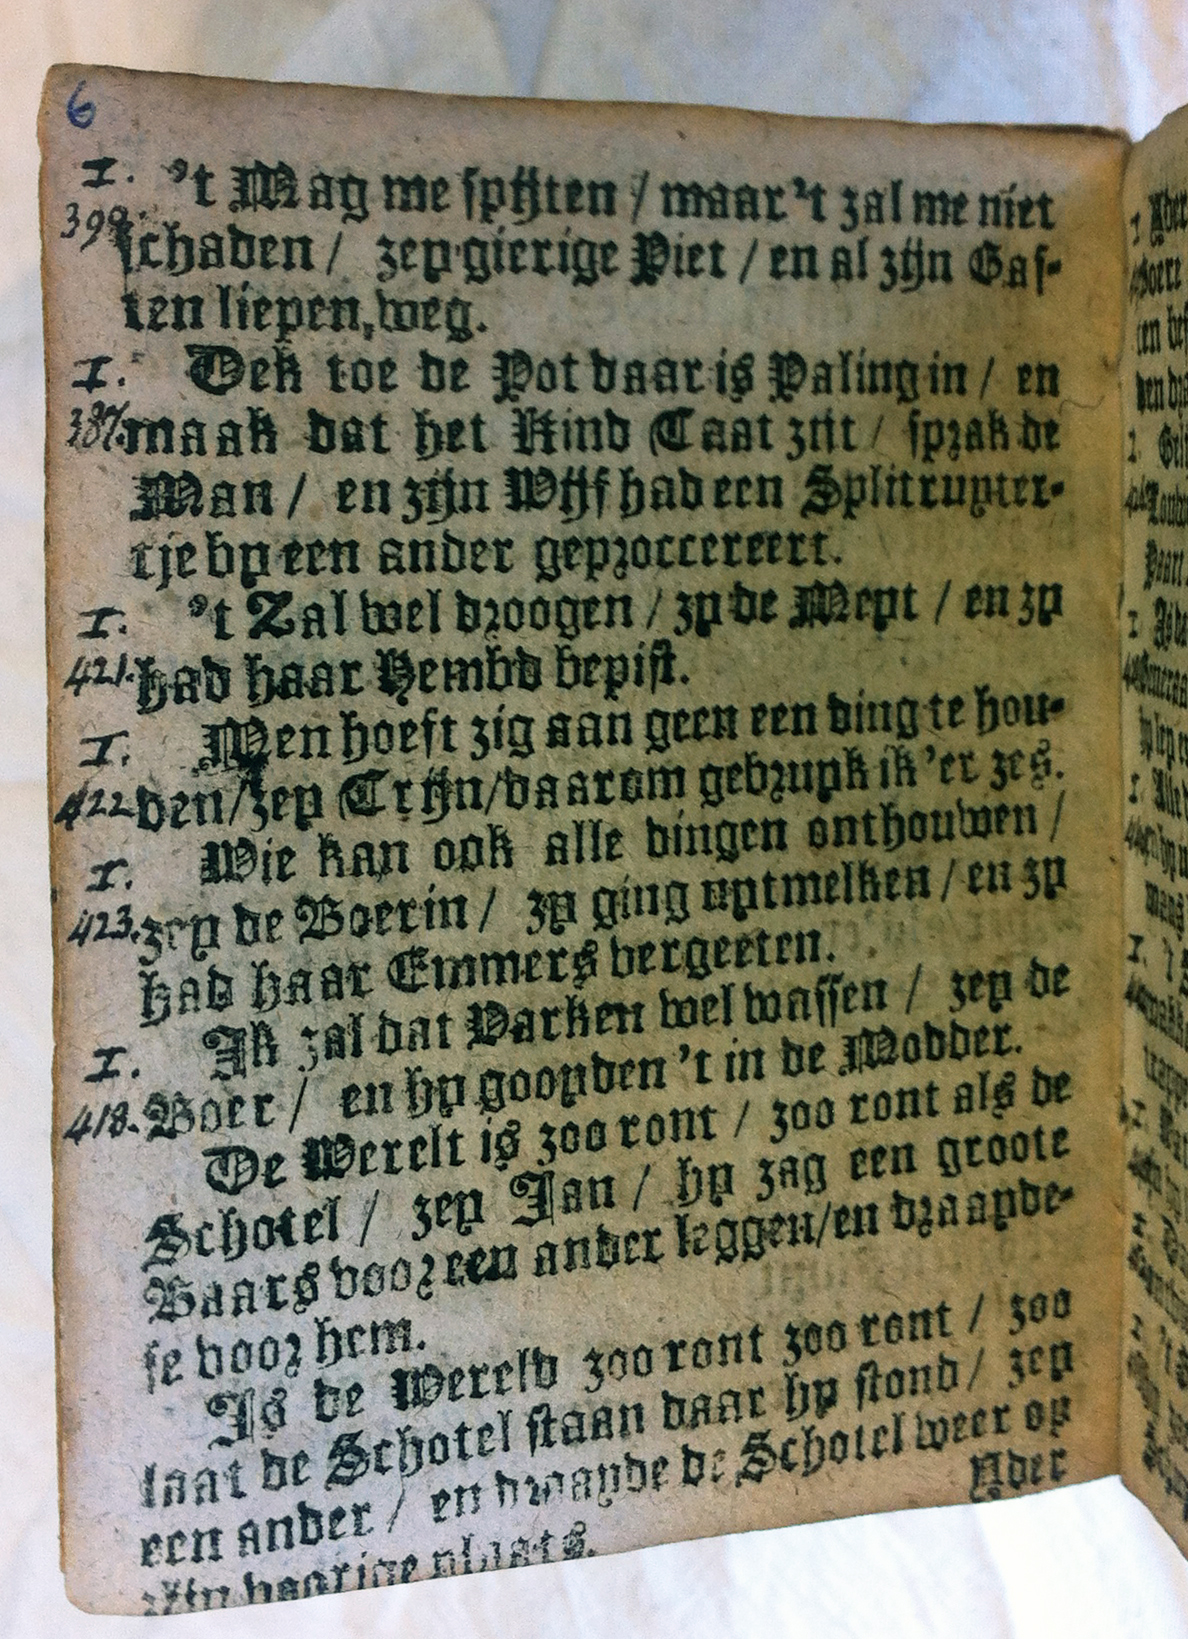 6
I. 't Mag me spijten / maar 't zal me niet
399 schaden / zey gierige Piet / en al zijn Gas-
ten liepen, weg.
I. Dek toe de Pot daar is Paling in / en
387. maak dat het Kind Taat zeit / sprak de
Man / en zijn Wijf had een Splitruyter-
tje by een ander geproccereert.
I. 't Zal wel droogen / zy de Meyt / en zy
421. had haar Hembd bepist.
I. Men hoeft zig aan geen een ding te hou-
422 den / zey Trijn / daarom gebruyk ik 'er zes.
I. Wie kan ook alle dingen onthouwen /
423. zey de Boerin / zy ging uytmelken / en zy
had haar Emmers vergeeten.
I. Ik zal dat Varken wel wassen / zey de
418. Boer / en hy gooyden 't in de Modder.
De Werelt is zoo ront / zoo ront als de
Schotel / zey Jan / hy zag een groote
Baars voor een ander leggen / en draayde-
se voor hem.
Is de Wereld zoo ront zoo ront / zoo
laat de Schotel staan daar hy stond / zey
een ander / en draayde de Schotel weer op
zijn voorige plaats.
Ader